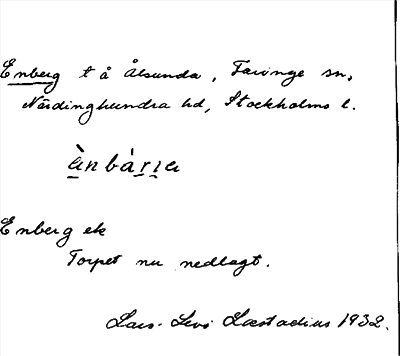 Enberg t å Ålsunda, Faringe sn,
Närdinghundra hd, Stockholms l.
ànbàrıa
Enberg ek
Torpet nu nedlagt.
Lars-Levi Læstadius 1932.